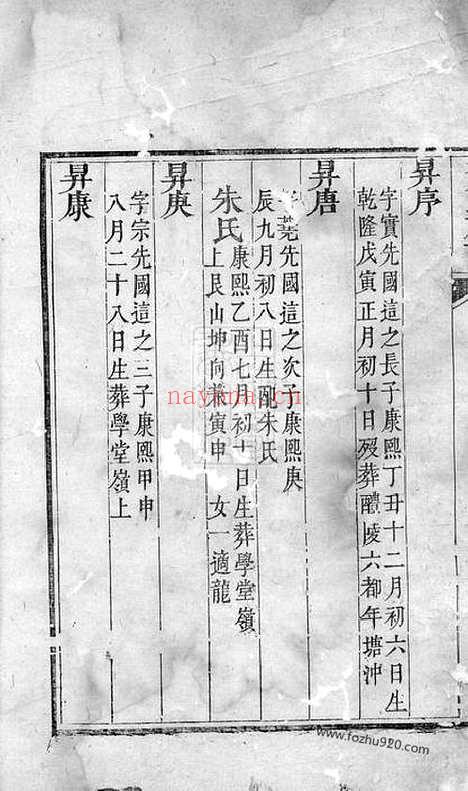 昇序
字實先國這之長子康熙丁丑十二月初六日生
乾隆戊寅正月初十日歿葬醴陵六都年塘沖
昇唐
莞先國這之次子康熙庚
辰九月初八日生配朱氏
朱氏康熙乙酉七月初十日生葬學堂嶺
上艮山坤向兼寅申 女一適龍
昇庚
字宗先國這之三子康熙甲申
八月二十八日生葬學堂嶺上
昇康
nayona.cn
www.fozhu920.com